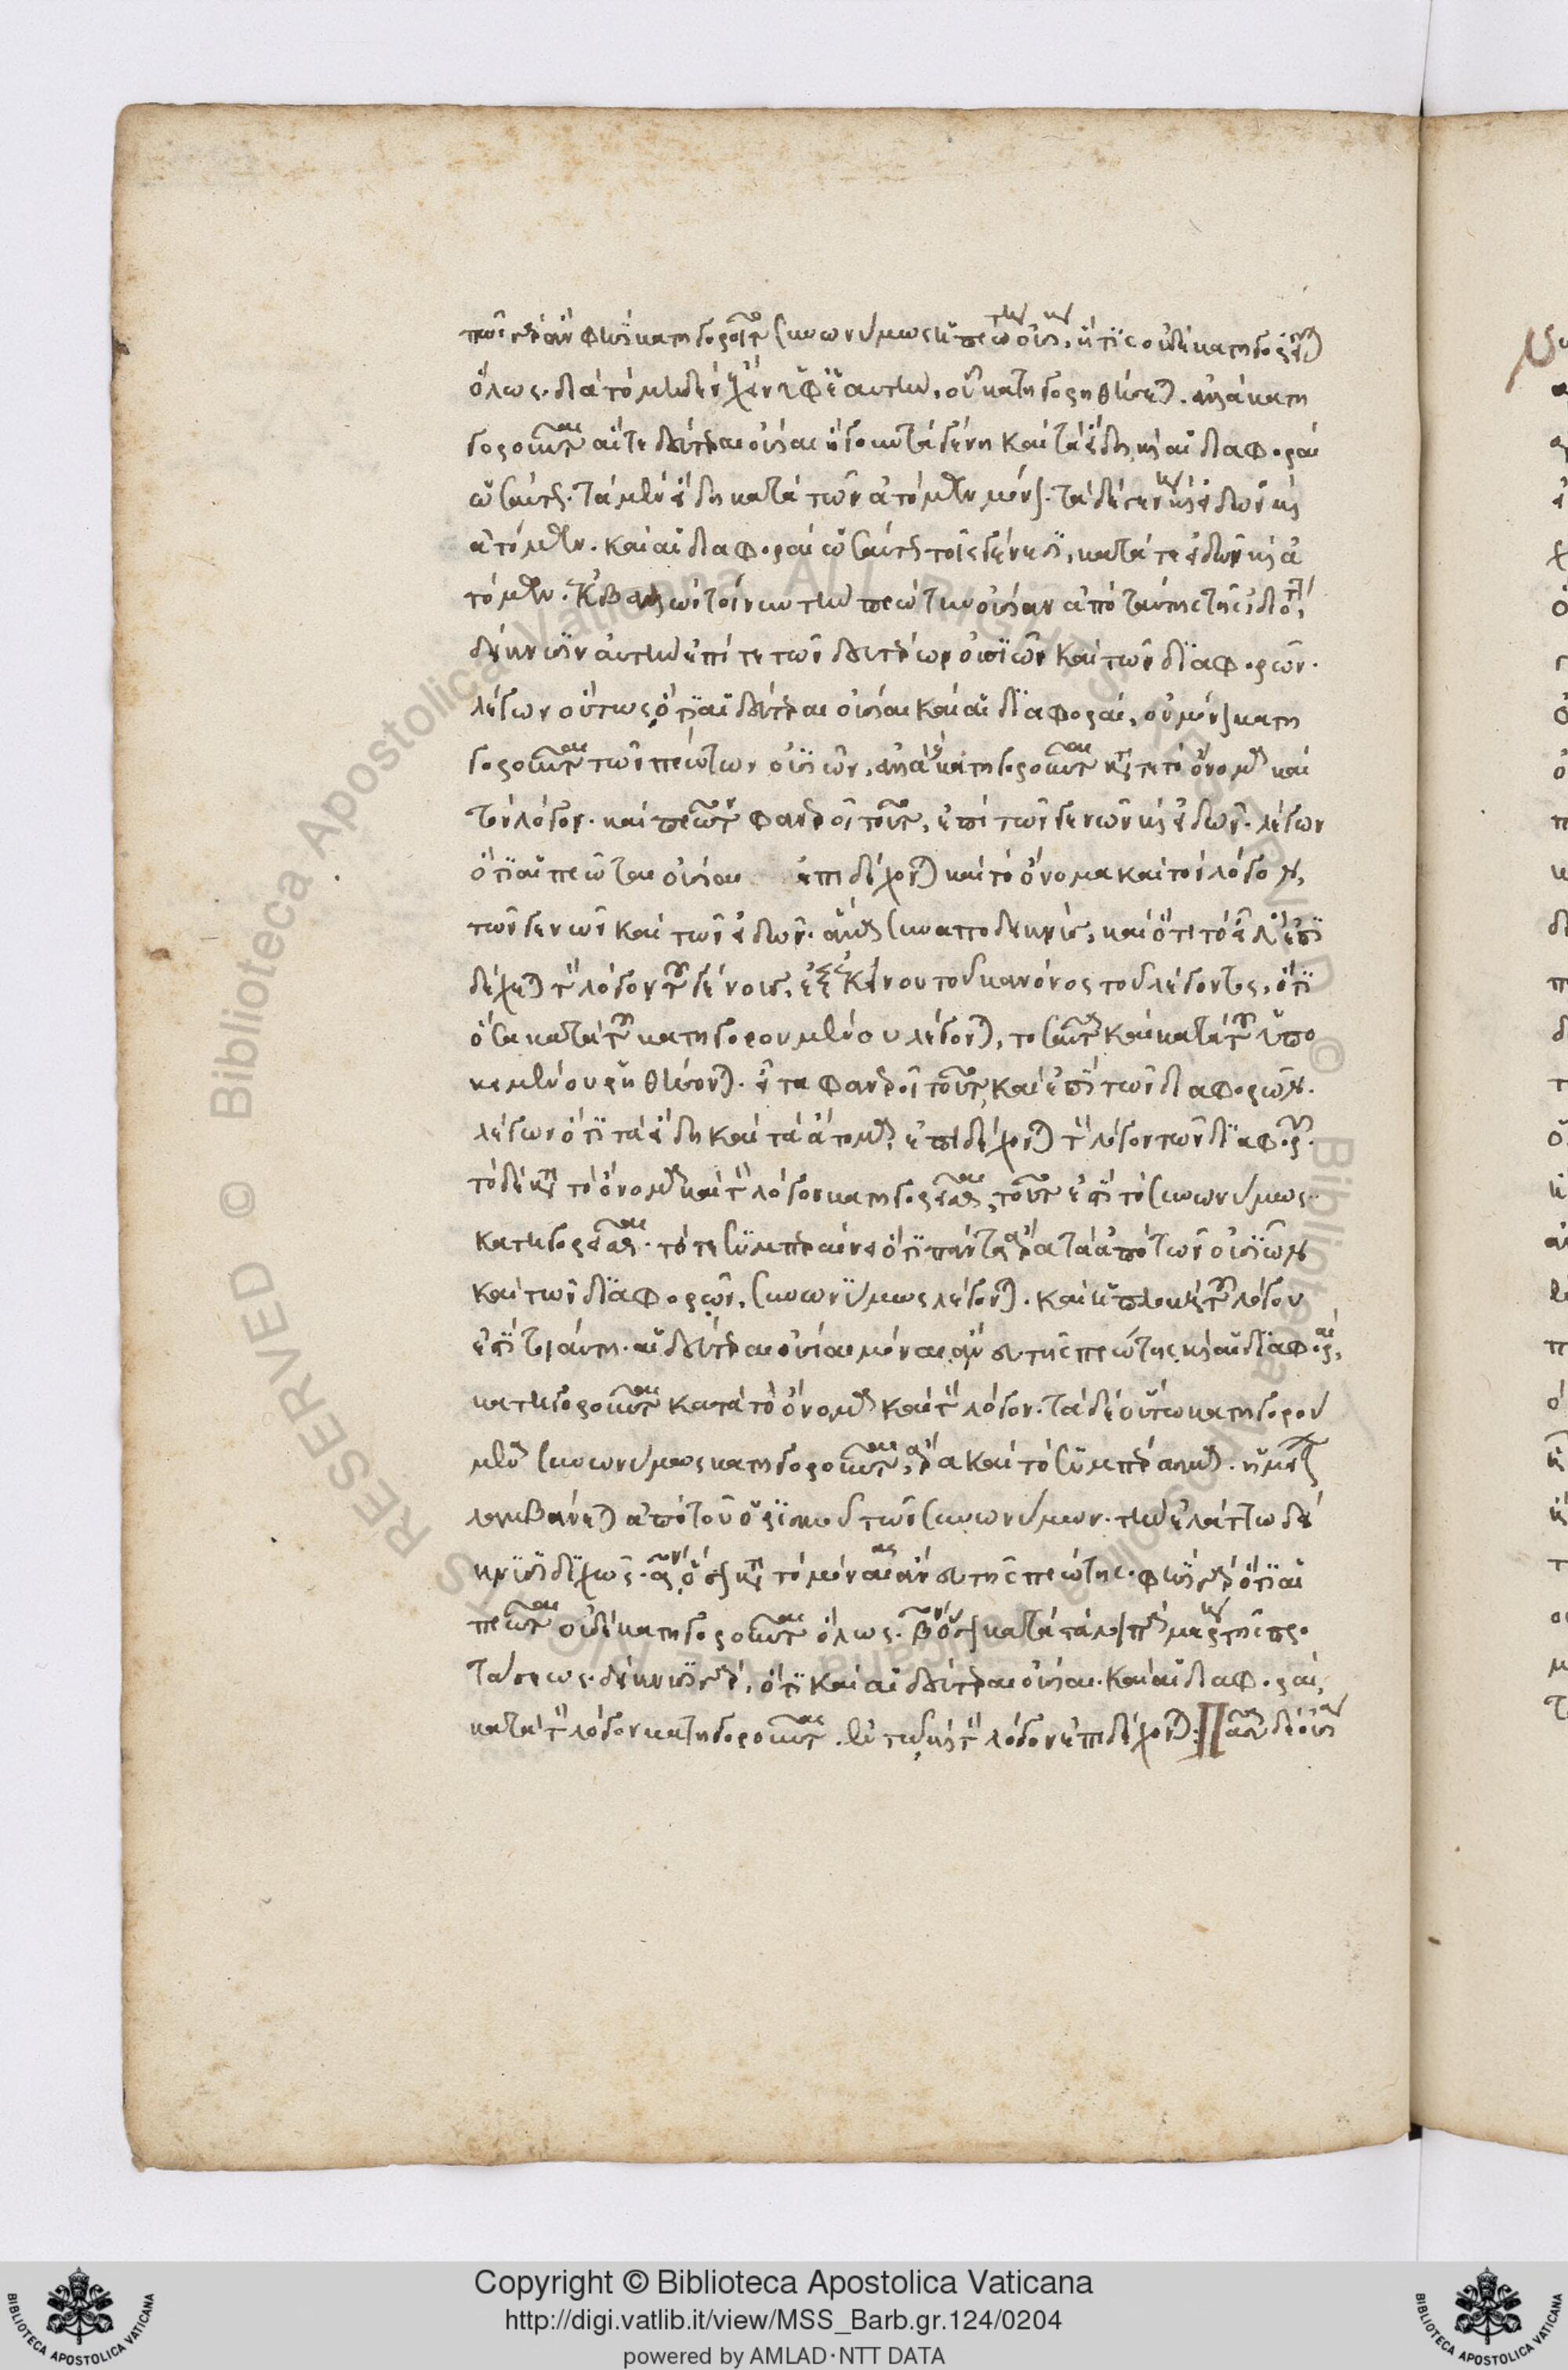 ποῖ γὰρ ἄν φησι κατηγοροῖτο συνωνύμως ἡ πρώτη οὐσία, ἥτις οὐδὲ κατηγορεῖται
ὅλως. διὰ τὸ μηδὲν ἔχειν ὑφ' ἑαυτήν, οὗ κατηγορηθήσεται. ἀλλὰ κατη
γοροῦνται αἵ τε δεύτεραι οὐσίαι ἤγουν τὰ γένη καὶ τὰ εἴδη, καὶ αἱ διαφοραὶ
ὡσαύτως. τὰ μὲν εἴδη κατὰ τῶν ἀτόμων μόνον. τὰ δὲ γένη καὶ εἰδῶν καὶ
ἀτόμων. καὶ αἱ διαφοραὶ ὡσαύτως τοῖς γένεσι, κατά τε εἰδῶν καὶ ἀ
τόμων. ἐκβαλὼν τοίνυν τὴν πρώτην οὐσίαν ἀπὸ ταύτης τῆς ἰδιότητος,
δείκνυσιν αὐτὴν ἐπί τε τῶν δευτέρων οὐσιῶν καὶ τῶν διαφορῶν.
λέγων οὕτως, ὅτι αἱ δεύτεραι οὐσίαι καὶ αἱ διαφοραί, οὐ μόνον κατη
γοροῦνται τῶν πρώτων οὐσιῶν, ἀλλὰ καὶ κατηγοροῦνται κατά τε τὸ ὄνομα καὶ
τὸν λόγον. καὶ πρῶτον φανεροῖ τοῦτο, ἐπὶ τῶν γενῶν καὶ εἰδῶν. λέγων
ὅτι αἱ πρῶται οὐσίαι ἐπιδέχονται καὶ τὸ ὄνομα καὶ τὸν λόγον,
τῶν γενῶν καὶ τῶν εἰδῶν. συναποδεικνύς, καὶ ὅτι τὸ εἶδος ἐπι
δέχεται τὸν λόγον τοῦ γένους, ἐξ ἐκείνου τοῦ κανόνος τοῦ λέγοντος, ὅτι
ὅσα κατὰ τοῦ κατηγορουμένου λέγονται, τοσαῦτα καὶ κατὰ τοῦ ὑπο
κειμένου ῥηθήσονται. εἶτα φανεροῖ τοῦτο καὶ ἐπὶ τῶν διαφορῶν.
λέγων ὅτι τὰ εἴδη καὶ τὰ ἄτομα, ἐπιδέχονται τὸν λόγον τῶν διαφορῶν.
τὸ δὲ κατὰ τὸ ὄνομα καὶ τὸν λόγον κατηγορεῖσθαι, τοῦτο ἐστὶ τὸ συνωνύμως
κατηγορεῖσθαι. τότε συμπεραίνει ὅτι πάντα ἄρα τὰ ἀπὸ τῶν οὐσιῶν
καὶ τῶν διαφορῶν, συνωνύμως λέγονται. καὶ ἡ πλοκὴ τοῦ λόγου
ἐστὶ τοιαύτη. αἱ δεύτεραι οὐσίαι μόναι ἄνευ τῆς πρώτης καὶ αἱ διαφοραί,
κατηγοροῦνται κατὰ τὸ ὄνομα καὶ τὸν λόγον. τὰ δὲ οὕτω κατηγορού
μενα συνωνύμως κατηγοροῦνται, ἄρα καὶ τὸ συμπέρασμα. ἡ μείζων
λαμβάνεται ἀπὸ τοῦ ὁρισμοῦ τῶν συνωνύμων. τὴν ἐλάττω δὲ
δείκνυσι διχῶς. ὅσον κατὰ τὸ μόνας ἄνευ τῆς πρώτης. φησὶ γὰρ ὅτι αἱ
πρῶται οὐδὲ κατηγοροῦνται ὅλως. ὅσον κατὰ τὰ λοιπὰ μέρη τῆς προ
τάσεως. δείκνυσι γάρ, ὅτι καὶ αἱ δεύτεραι οὐσίαι. καὶ αἱ διαφοραί,
κατὰ τὸν λόγον κατηγοροῦνται. καὶ τὸν λόγον ἐπιδέχονται. Πᾶσα δὲ οὐσία